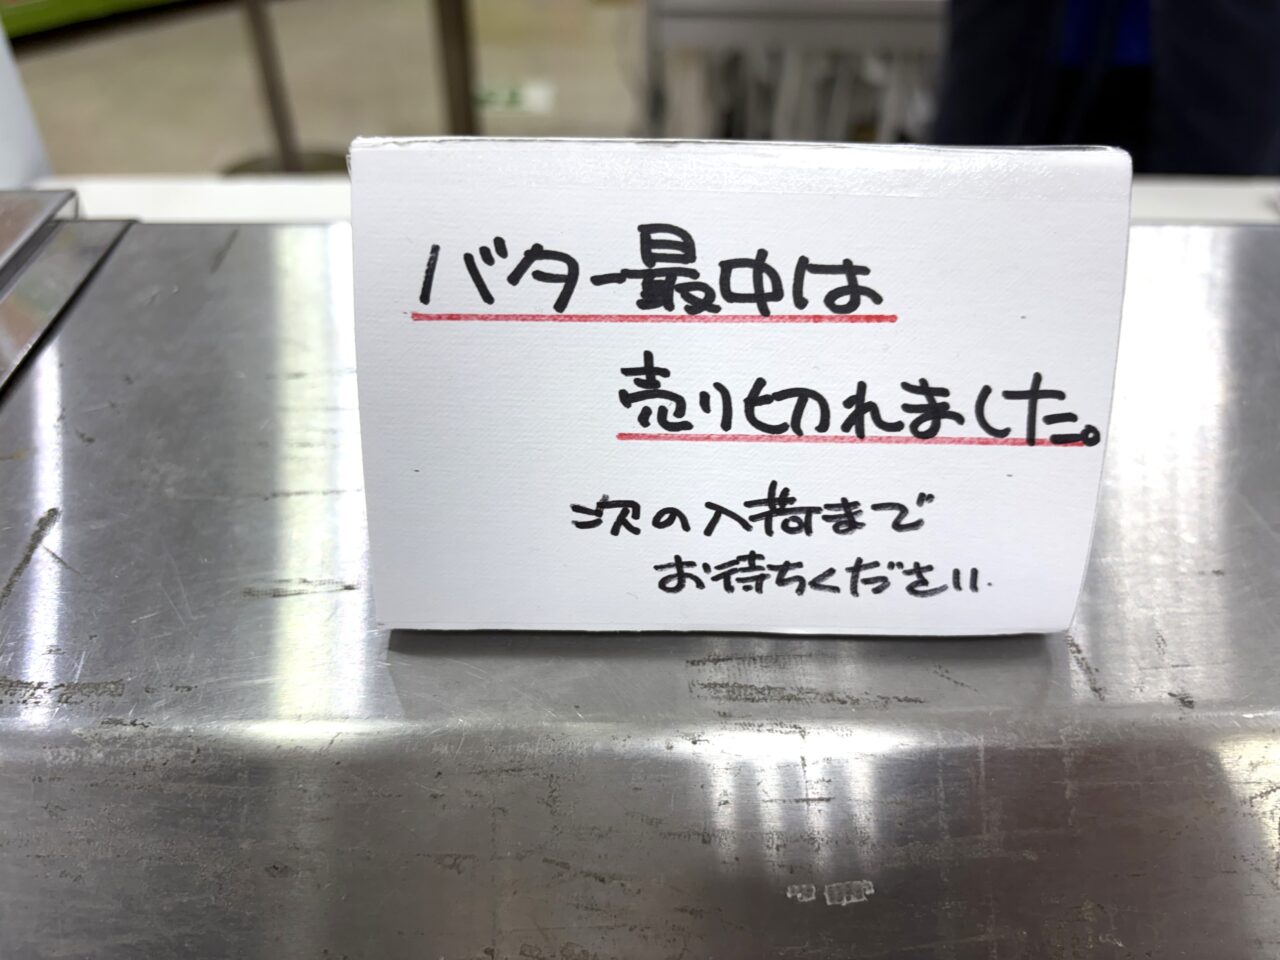 バター最中は
売り切れました。
次の入荷まで
お待ちください.